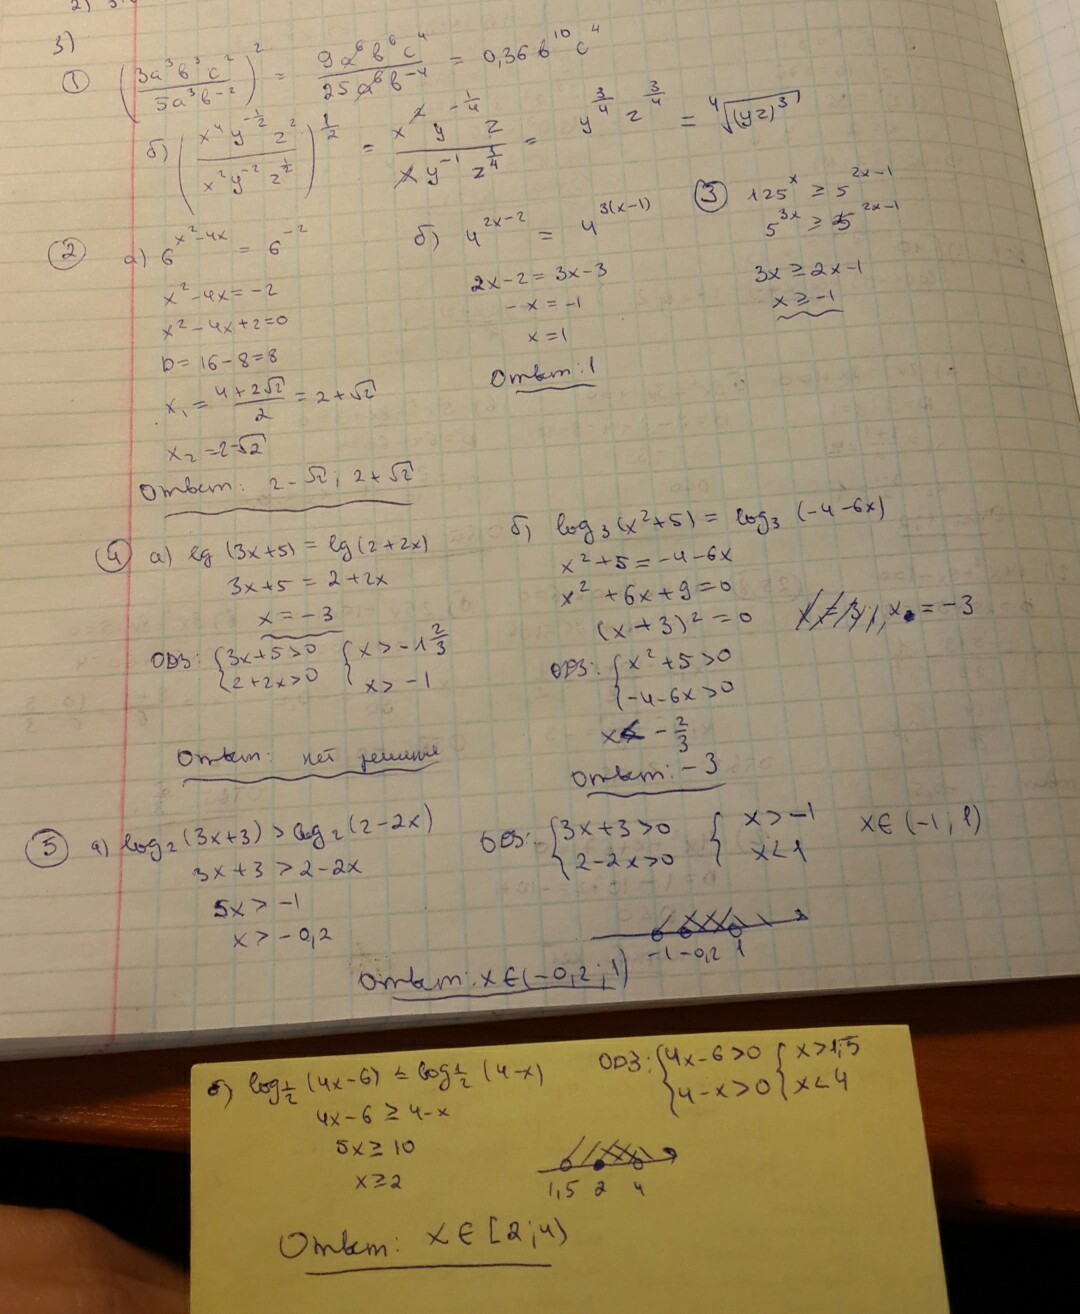 3)
① (3a³b³c² / 5a³b⁻²)² = 9a⁶b⁶c⁴ / 25a⁶b⁻⁴ = 0,36b¹⁰c⁴
б) (x⁴y^(-1/2)z² / x²y⁻²z^(1/2))^(1/2) = x²y^(-1/4)z / xy⁻¹z^(1/4) = y^(3/4) z^(3/4) = ⁴√(yz)³
② а) 6^(x²-4x) = 6⁻²
x²-4x=-2
x²-4x+2=0
D=16-8=8
x₁ = (4+2√2)/2 = 2+√2
x₂ = 2-√2
Ответ: 2-√2; 2+√2
б) 4^(2x-2) = 4^(3(x-1))
2x-2=3x-3
-x=-1
x=1
Ответ: 1
③ 125^x ≥ 5^(2x-1)
5^(3x) ≥ 5^(2x-1)
3x ≥ 2x-1
x ≥ -1
④ а) lg (3x+5) = lg (2+2x)
3x+5 = 2+2x
x = -3
ОДЗ: {3x+5>0 {x>-1 2/3
2+2x>0 x>-1
Ответ: нет решения
б) log₃ (x²+5) = log₃ (-4-6x)
x²+5=-4-6x
x²+6x+9=0
(x+3)²=0 x = -3
ОДЗ: {x²+5>0
-4-6x>0
x< -2/3
Ответ: -3
⑤ а) log₂(3x+3)>log₂(2-2x)
3x+3>2-2x
5x>-1
x>-0,2
ОДЗ: {3x+3>0 {x>-1 x∈(-1; 1)
2-2x>0 x<1
-1 -0,2 1
Ответ: x∈(-0,2; 1)
б) log_(1/2) (4x-6) ≤ log_(1/2) (4-x)
4x-6 ≥ 4-x
5x ≥ 10
x ≥ 2
ОДЗ: {4x-6>0 {x>1,5
4-x>0 x<4
1,5 2 4
Ответ: x∈[2;4)